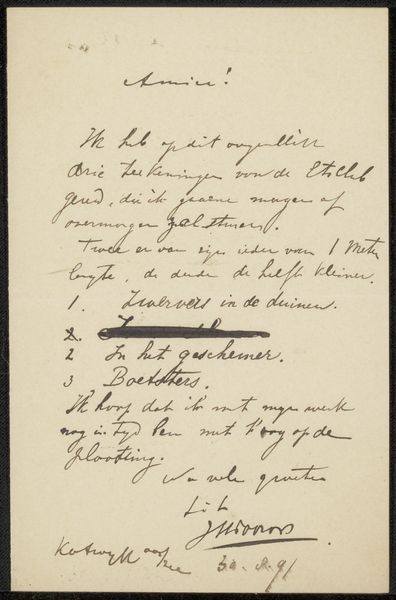 Amice!
Ik heb op dit oogenblik
drie teekeningen voor de Etsclub
gereed, die ik gaarne morgen of
overmorgen zal sturen.
Twee er van zijn ieder van 1 Meter
lengte, de derde de helft kleiner.
1. Zwervers in de duinen.
2.
2 In het geschemer.
3 Boetsters.
Ik hoop dat ik met mijn werk
nog in tyd ben met het oog op de
Na vele groeten
t. à t.
Katwyk aan zee 30. 91